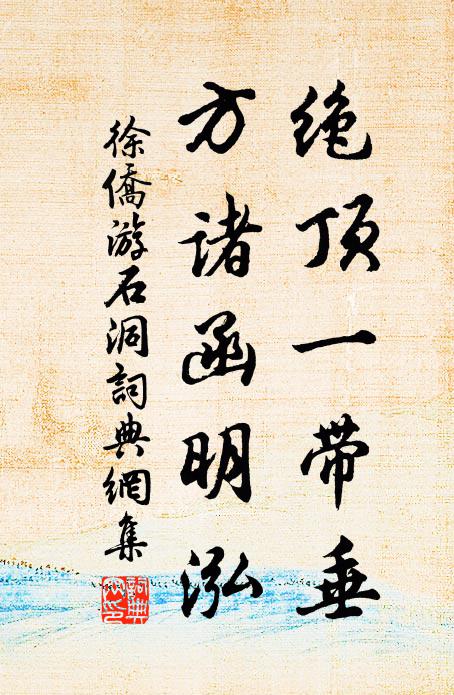 绝顶一带垂
方诸函明泓
徐僑游石洞詞典網集
詞典